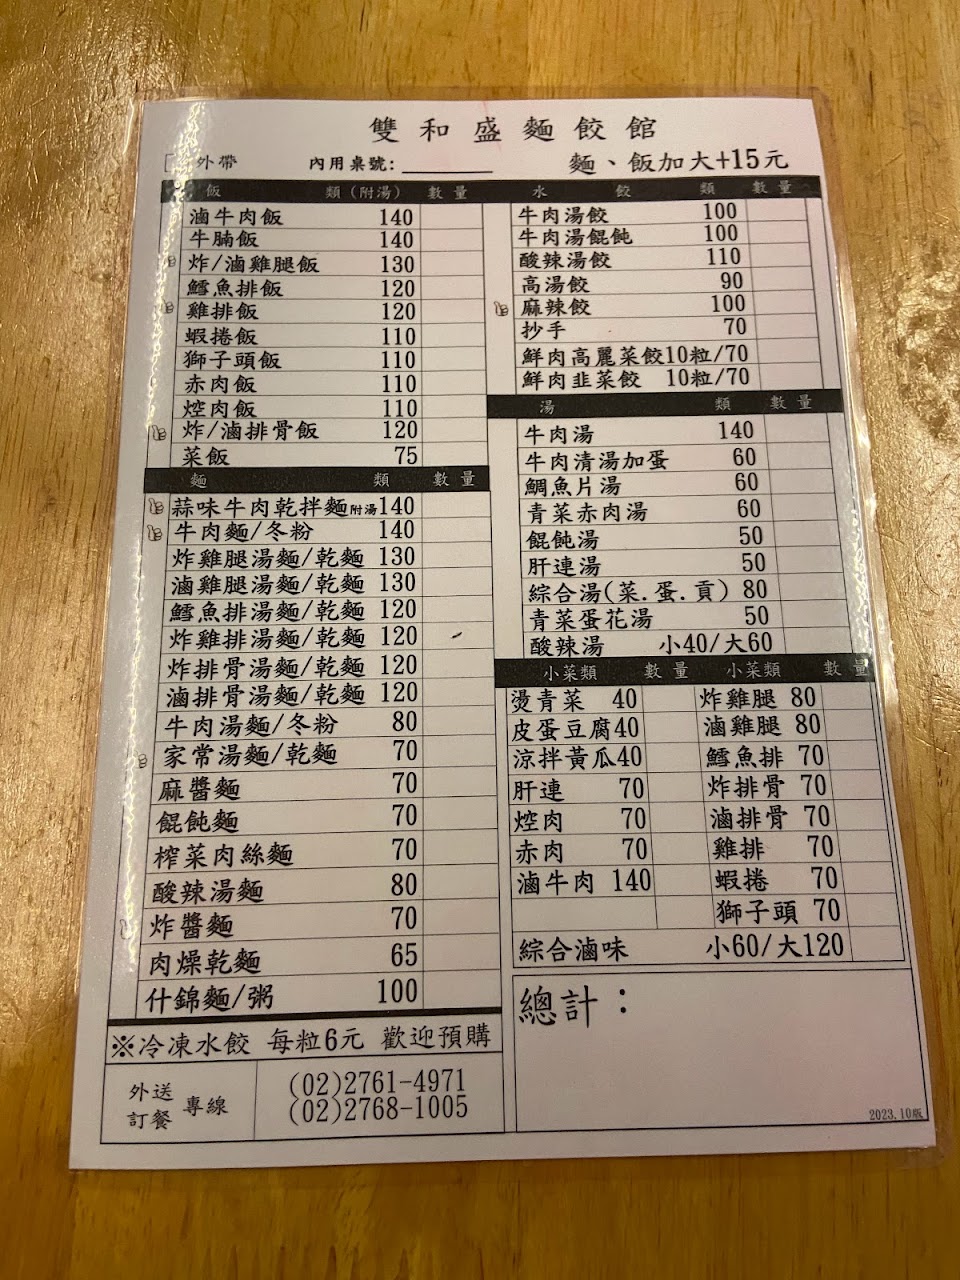 雙和盛麵餃館
外帶 內用桌號:________ 麵、飯加大+15元
飯 類(附湯) 數量
滷牛肉飯 140
牛腩飯 140
炸/滷雞腿飯 130
鱈魚排飯 120
雞排飯 120
蝦捲飯 110
獅子頭飯 110
赤肉飯 110
焢肉飯 110
炸/滷排骨飯 120
菜飯 75
麵 類 數量
蒜味牛肉乾拌麵附湯140
牛肉麵/冬粉 140
炸雞腿湯麵/乾麵 130
滷雞腿湯麵/乾麵 130
鱈魚排湯麵/乾麵 120
炸雞排湯麵/乾麵 120
炸排骨湯麵/乾麵 120
滷排骨湯麵/乾麵 120
牛肉湯麵/冬粉 80
家常湯麵/乾麵 70
麻醬麵 70
餛飩麵 70
榨菜肉絲麵 70
酸辣湯麵 80
炸醬麵 70
肉燥乾麵 65
什錦麵/粥 100
※冷凍水餃 每粒6元 歡迎預購
外送訂餐 專線
(02)2761-4971
(02)2768-1005
水 餃 類 數量
牛肉湯餃 100
牛肉湯餛飩 100
酸辣湯餃 110
高湯餃 90
麻辣餃 100
抄手 70
鮮肉高麗菜餃10粒/70
鮮肉韭菜餃 10粒/70
湯 類 數量
牛肉湯 140
牛肉清湯加蛋 60
鯛魚片湯 60
青菜赤肉湯 60
餛飩湯 50
肝連湯 50
綜合湯(菜.蛋.貢) 80
青菜蛋花湯 50
酸辣湯 小40/大60
小菜類 數量 小菜類 數量
燙青菜 40 炸雞腿 80
皮蛋豆腐40 滷雞腿 80
涼拌黃瓜40 鱈魚排 70
肝連 70 炸排骨 70
焢肉 70 滷排骨 70
赤肉 70 雞排 70
滷牛肉 140 蝦捲 70
獅子頭 70
綜合滷味 小60/大120
總計：
2023.10版